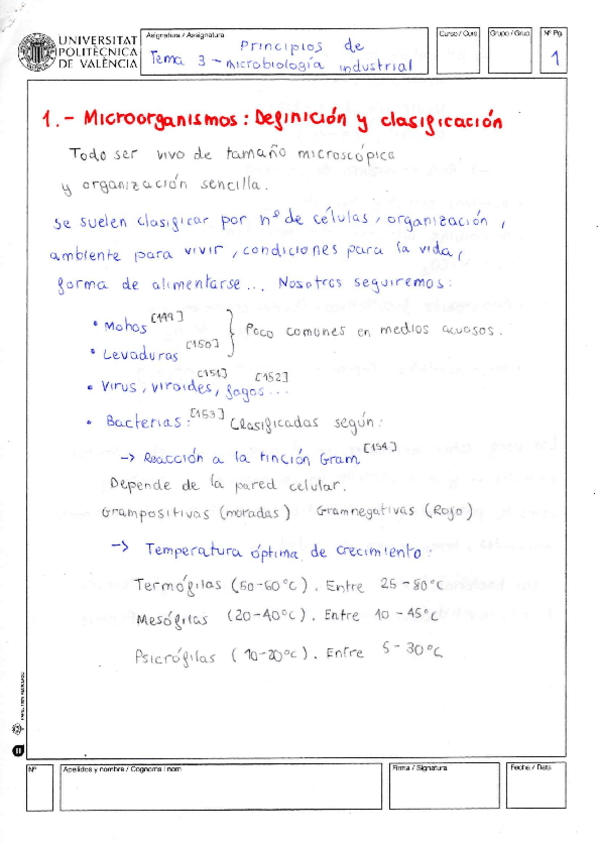 UNIVERSITAT
POLITÈCNICA
DE VALÈNCIA
Asignatura / Assignatura
Principios de
Tema 3 - microbiología industrial
Curso / Curs
Grupo / Grup
Nº Pg.
1
1.- Microorganismos: Definición y clasificación
Todo ser vivo de tamaño microscópico
y organización sencilla.
Se suelen clasificar por nº de células, organización,
ambiente para vivir, condiciones para la vida,
forma de alimentarse... Nosotros seguiremos:
• Mohos [149]
• Levaduras [150]
} Poco comunes en medios acuosos.
• Virus, viroides, fagos... [151] [152]
• Bacterias: [153] Clasificadas según:
-> Reacción a la tinción Gram [154]
Depende de la pared celular.
Grampositivas (moradas) Gramnegativas (Rojo)
-> Temperatura óptima de crecimiento:
Termófilas (50-60ºC). Entre 25-80ºC
Mesófilas (20-40ºC). Entre 10-45ºC
Psicrófilas (10-20ºC). Entre 5-30ºC
Nº
Apellidos y nombre / Cognoms i nom
Firma / Signatura
Fecha / Data